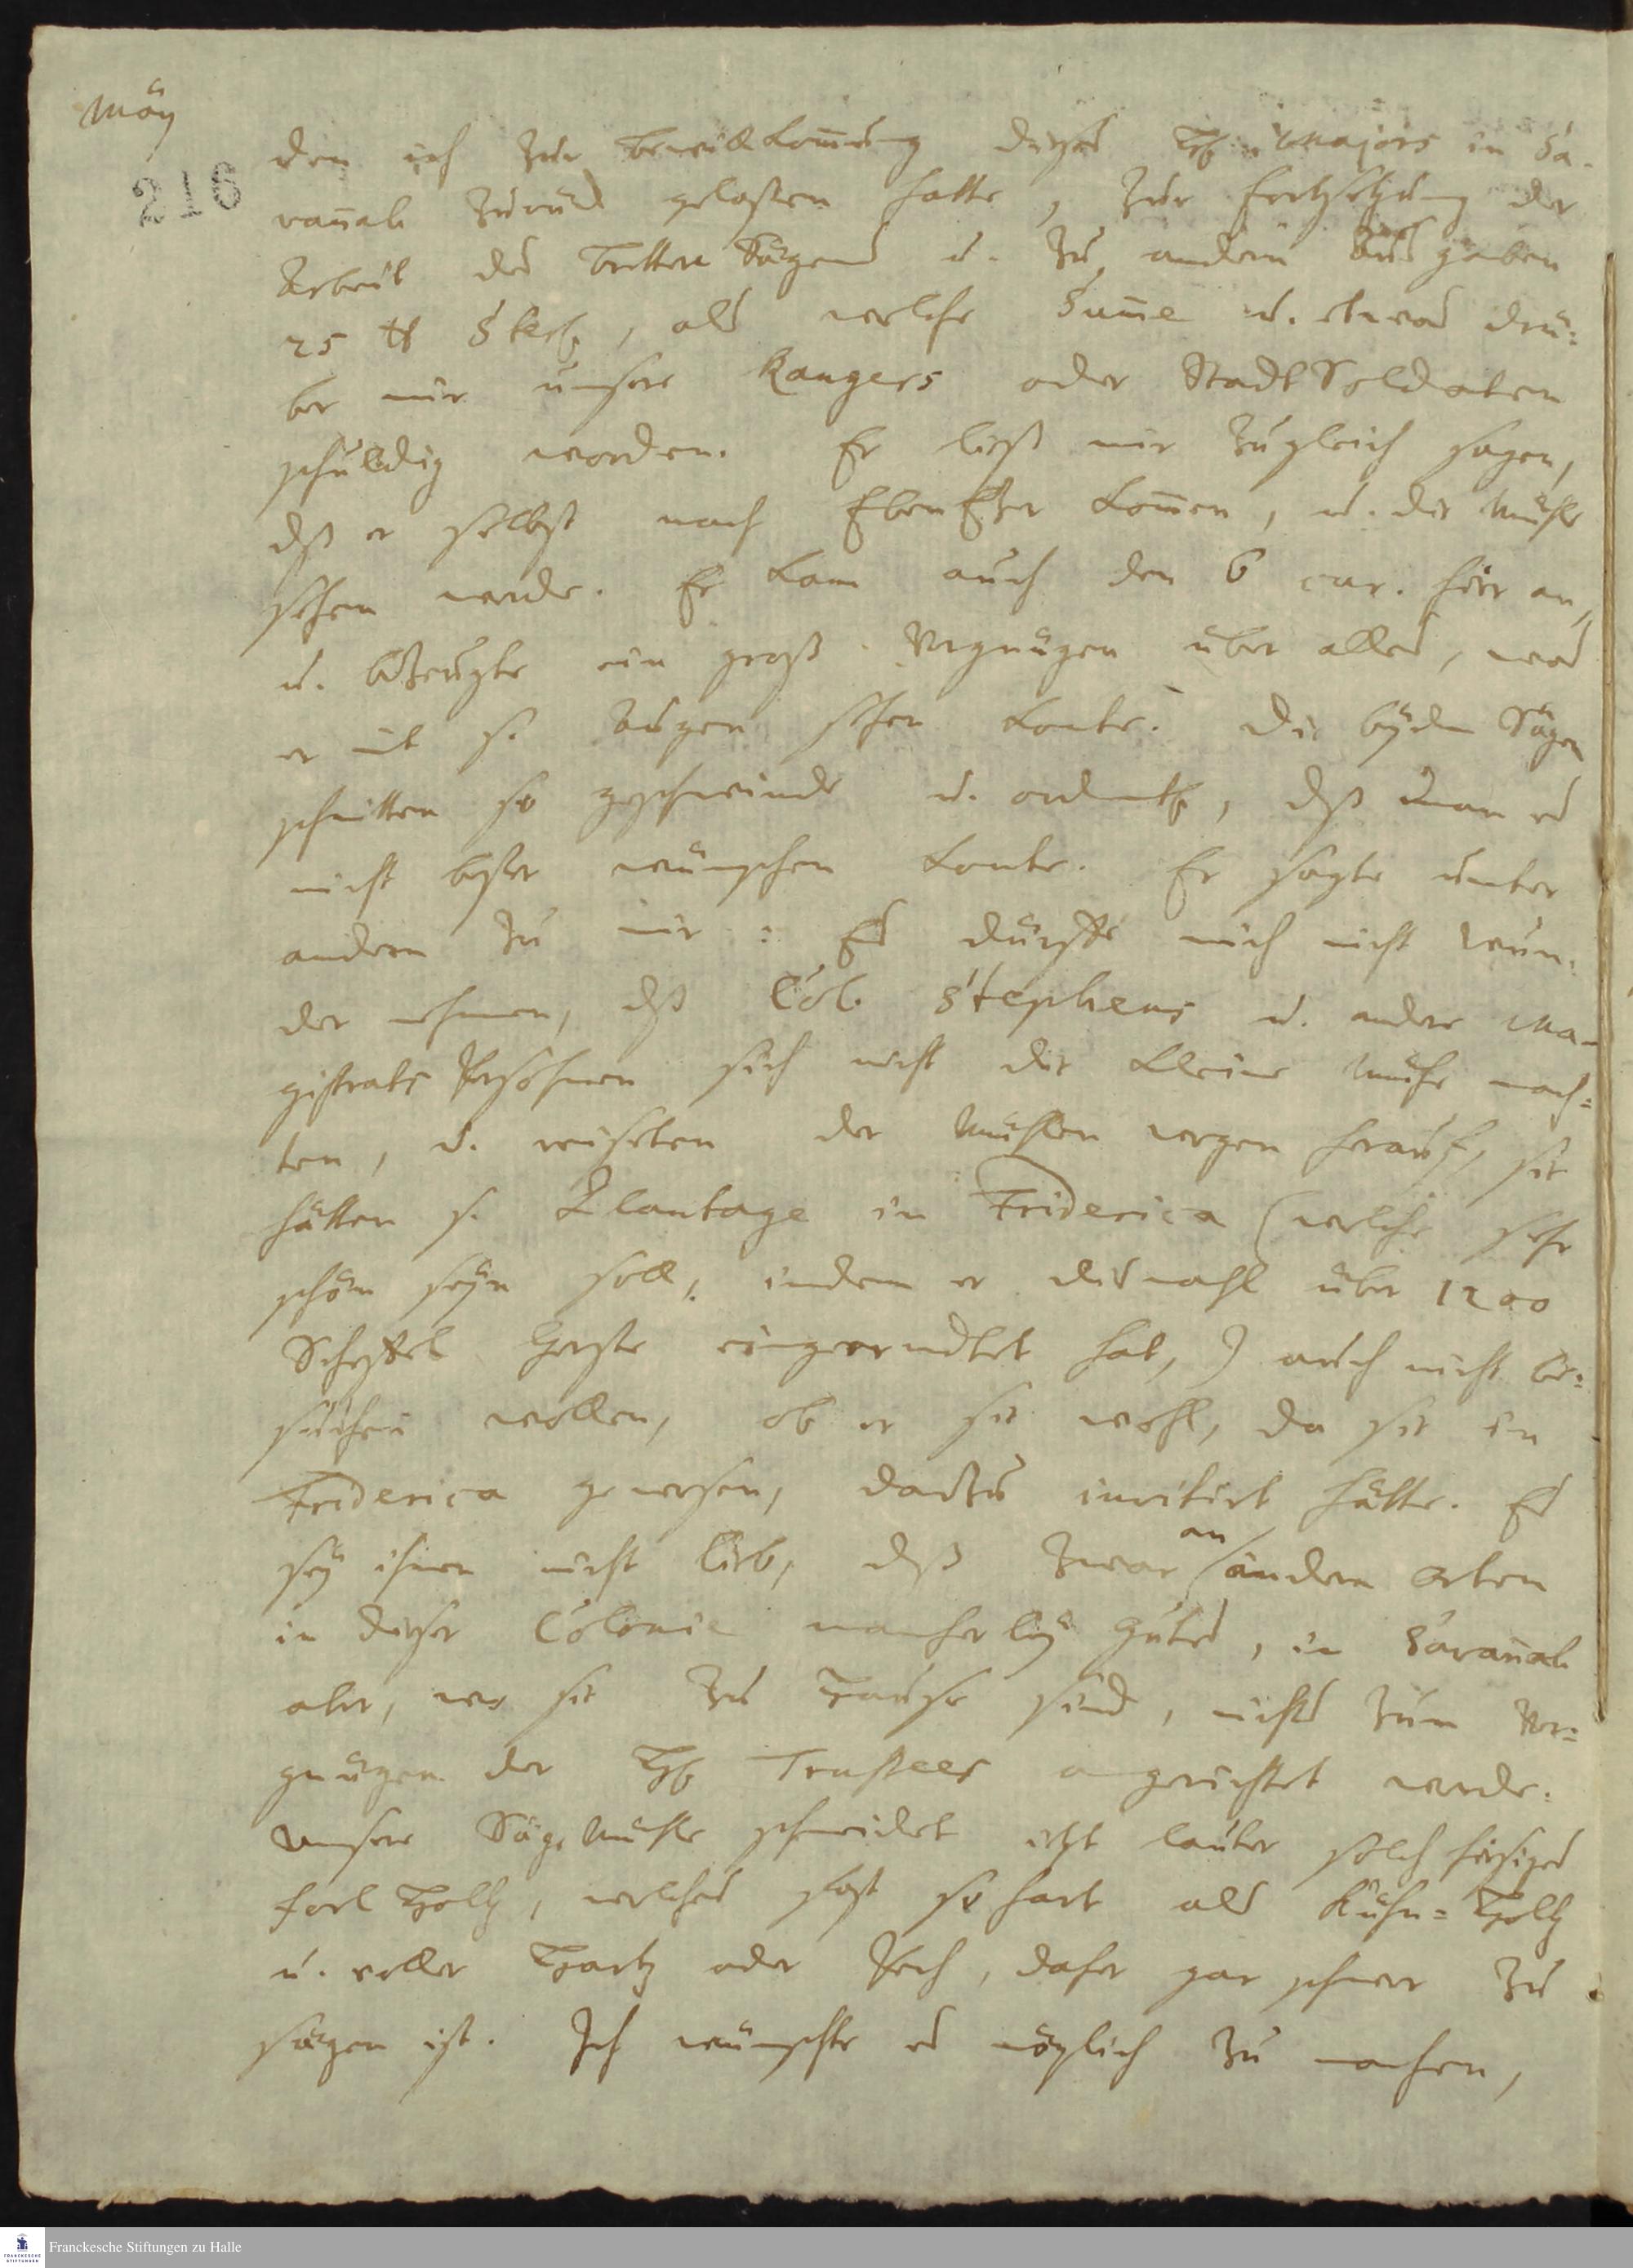 Maÿ
216
den ich zur Bewillkom̄ung dieses H. Majors in Sa-
van̄ah zurück gelaßen hatte, zur Fortsetzung der
Arbeit des Bretter Sägens u. zu andern Ausgaben
25 ℔ Sterl., als welche Sum̄e u. etwas drü-
ber mir unsere Rangers oder Stadt Soldaten
schuldig worden. Er ließ mir zugleich sagen,
dß er selbst nach EbenEzer kom̄en, u. die Mühle
sehen werde. Er kam auch den 6 cur. hier an,
u. bezeugte ein groß Vergnügen über alles, was
er mit s. Augen sehen konte. Die beÿden Sägen
schnitten so geschwinde u. ordentl., dß man es
nicht beßer wünschen konte. Er sagte unter
andern zu mir: Es dürffte mich nicht wun-
der nehmen, dß Col. Stephens u. andere Ma-
gistrats Persohnen sich nicht die kleine Mühe mach-
ten, u. reiseten der Mühlen wegen herauf, sie
hätten s. Plantage in Friderica (welche sehr
schön seÿn soll, indem er dismahl über 1200
Scheffel Gerste eingeerndtet hat,) auch nicht be-
suchen wollen, ob er sie wohl, da sie in
Friderica gewesen, darzu invitirt hätte. Es
seÿ ihnen nicht lieb, dß zwar an andern Orten
in dieser Colonie mancherleÿ gutes, in Savan̄ah
aber, wo sie zu Hause sind, nichts zum Ver-
gnügen der H. Trustees angerichtet werde.
Unsere Säge Mühle schneidet itzt lauter solch hiesiges
forl Holtz, welches fast so hart als Kühn-Holtz
u. voller Hartz oder Pech, daher gar schwer zu
sägen ist. Ich wünschte es möglich zu machen,
Franckesche Stiftungen zu Halle